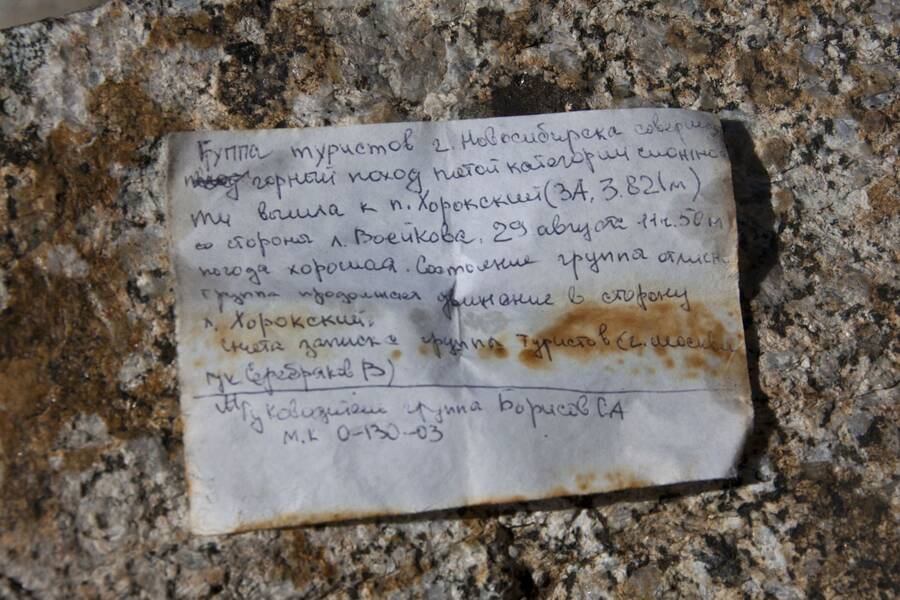 Группа туристов г. Новосибирска соверша
горный поход пятой категории сложнос
ти вышла к п. Хорокский (3А, 3.821м)
со стороны л. Воейкова. 29 августа 11ч. 50м
погода хорошая. Состояние группы отличн
группа продолжает движение в сторону
л. Хорокский.
Снята записка группы туристов (г. Москвы
рук Серебряков В)
Руководитель группы Борисов СА
м.к 0-130-03